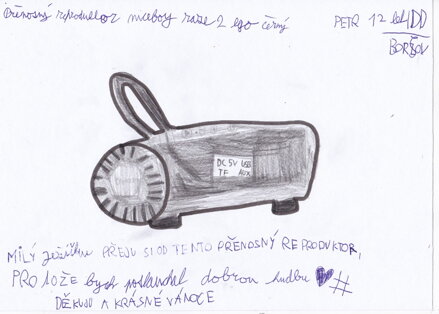 Přenosný reproduktor maxboy raze 2 ego černý
PETR 12 let DD
BORŠOV
DC 5V USB
TF AUX
MILÝ ježíšku PŘEJU SI OD TENTO PŘENOSNÝ REPRODUKTOR,
PROTOŽE bych poslouchal dobrou hudbu #
DĚKUJU A KRÁSNÉ VÁNOCE